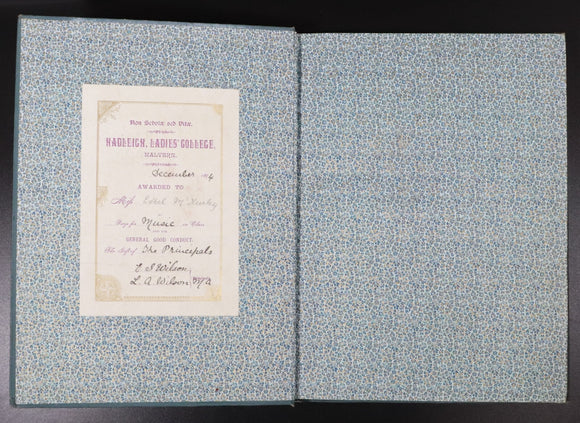 Non Scholæ sed Vitæ.
HADLEIGH, LADIES' COLLEGE,
MALVERN.
December
AWARDED TO
Miss Ethel
Prize for Music in Class
GENERAL GOOD CONDUCT.
The Gift of The Principals
E S Wilson,
L. A. Wilson,